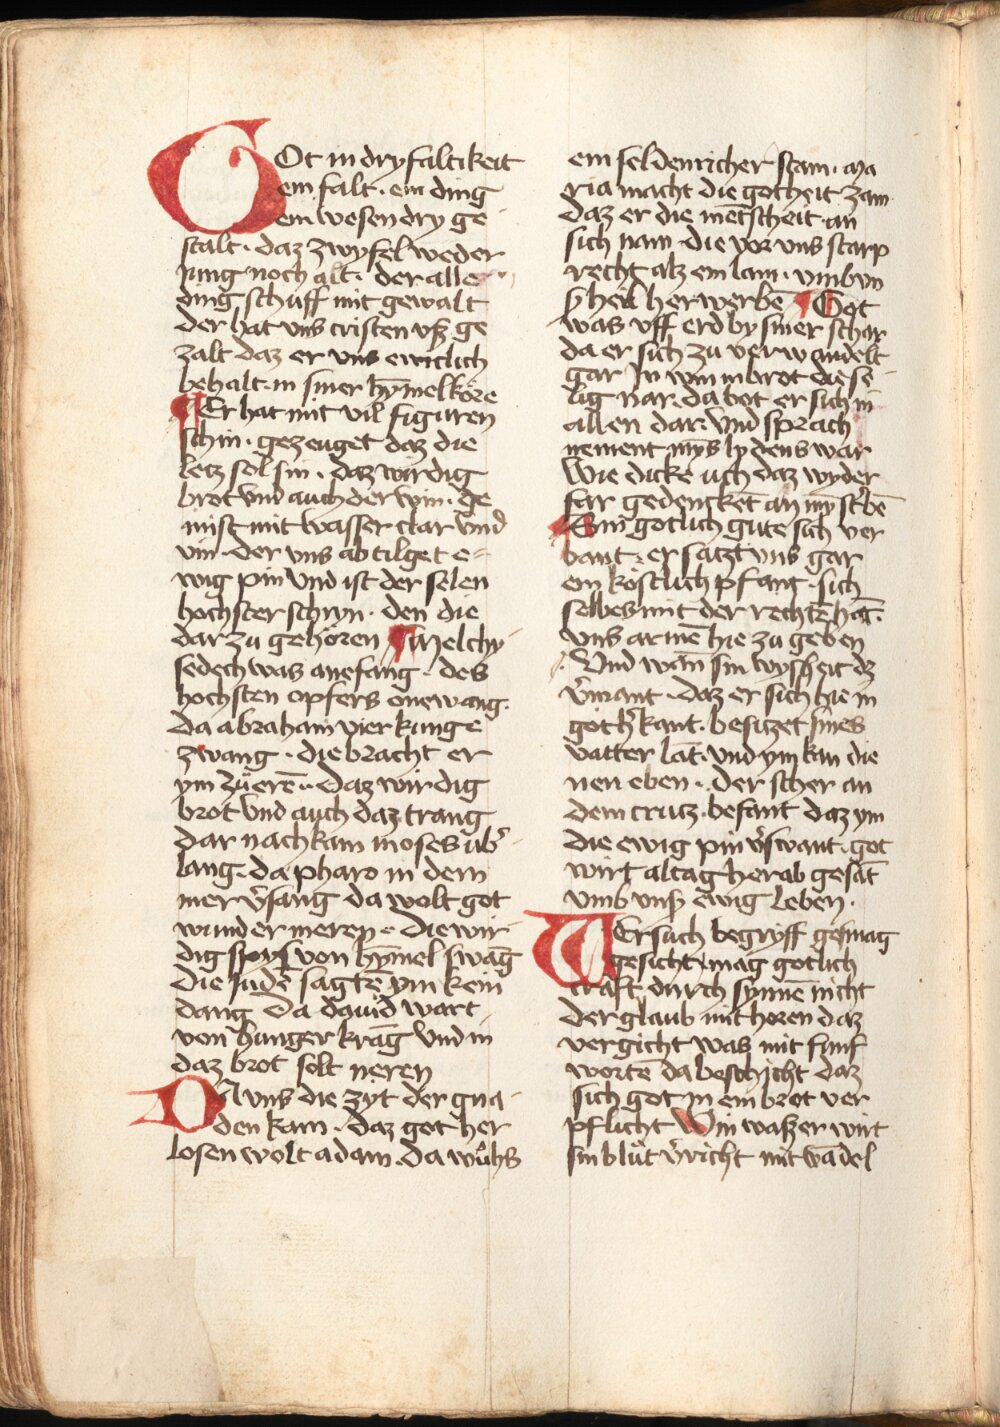 GOt in dryfaltikeit
ein falt · ein ding
ein wesen dry ge
stalt · daz zwyfel weder
Jung noch alt · der alle
ding schuff mit gewalt
der hat vns cristen vß ge
zalt daz er vns ewiclich
behalt in siner hȳmelköre
Er hat mit vil figuren
schin · gezeuget daz die
letz sol sin · daz wirdig
brot vnd auch der win · ge
mist mit wasser clar vnd
vin · der vns ab tilget e-
wig pin vnd ist der selen
hochster schryn · den die
dar zu gehoren Melchy
sedech was anefang · des
hochsten opfers one wang ·
da abraham vier kunge
zwang · die bracht er
ym zu eren̄ · daz wirdig
brot vnd auch daz trang
dar nach kam moses vb̄
lang · da pharo in dem
mer v̄sang da wolt got
wunder meren · die wir
dig spys von hȳmel swāg
die Judē sagtē ym kein
dang Da dauid wart
von hunger krāg vnd in
daz brot solt neren
DA vns die zyt der gna-
den kam · daz got her
losen wolt adam · da wuͦhs
ein seldenricher stam · ma
ria macht die gotheit zam
daz er die mētscheit an
sich nam · die vor vns starp
recht alz ein lam · vmb vn
ß heil her werbē Got
was vff erd by siner schar
da er sich zu verwandelt
gar Jn win in brot die se-
lig nar · da bot er sich in
allen dar · vnd sprach
nement mȳs lydens war
Wie dicke uch daz wyder
far gedenckēt an mȳ st̄bē
Sin gotlich gute sich ver
bant · er satzt vns gar
ein kostlich pfant · sich
selbes mit der rechtē hāt ·
vns armē hie zu geben
Vnd wān sin wyßheit dz
v̄mant · daz er sich hie in
goth̄ kant · besitzet sines
vatter lāt · vnd ym kan die
nen eben · der scher an
dem crutz · befant daz ym
die ewig pin v̄swant · got
wirt altag herab gesāt
vmb vnß ewig leben ·
WEr such begryff gesmag
gesicht mag gotlich
craft durch synnē nicht
der glaub mit horen daz
vergicht was mit funf
wortē da beschicht daz
sich got in ein brot ver
pflicht Win waßer wirt
sin bluͦt v̄richt mit wādel